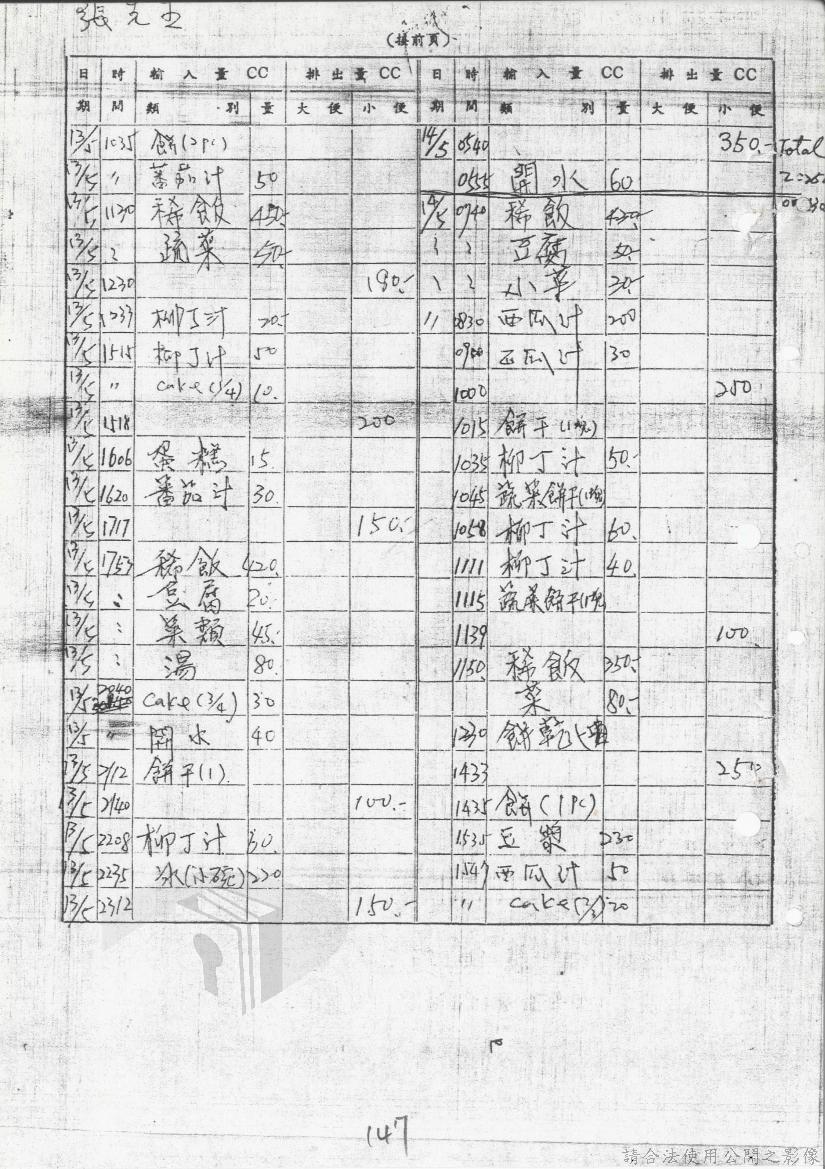 (接前頁)
日期 時間 輸入量CC 類別 量 排出量CC 大便 小便 日期 時間 輸入量CC 類別 量 排出量CC 大便 小便
13/5 1035 餅(2pc)
13/5 〃 蕃茄汁 50
13/5 1130 稀飯 450.-
13/5 〃 蔬菜 50.-
13/5 1230 180.-
13/5 1233 柳丁汁 20.-
13/5 1515 柳丁汁 50
13/5 〃 cake(1/4) 10.
13/5 1518 200
13/5 1606 蛋糕 15.
13/5 1620 蕃茄汁 30.
13/5 1717 150.-
13/5 1753 稀飯 420.
13/5 : 豆腐 20.
13/5 : 菜類 45.
13/5 : 湯 80.
13/5 2040 cake(3/4) 30
13/5 〃 開水 40
13/5 2112 餅干(1).
13/5 2140 100.-
13/5 2208 柳丁汁 50.
13/5 2235 冰(小碗) 220
13/5 2312 150.-
14/5 0540 350.- Total
0555 開水 60
14/5 0740 稀飯 420.-
豆腐 50.
小菜 30.-
〃 0830 西瓜汁 200
0900 西瓜汁 30
1000 250
1015 餅干(1塊)
1035 柳丁汁 50.-
1045 蔬菜餅干(1塊)
1058 柳丁汁 60.
1111 柳丁汁 40.
1115 蔬菜餅干(1塊)
1139 100.
1150 稀飯 350.-
菜 80.-
1230 餅乾
1433 250
1435 餅(1pc)
1535 豆漿 230
1547 西瓜汁 50
〃 cake
147
請合法使用公開之影像